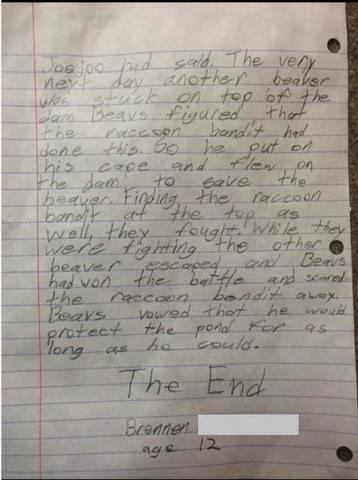 Joejoo had said. The very
next day another beaver
was stuck on top of the
dam. Beavs figured that
the raccoon bandit had
done this. So he put on
his cape and flew on
the dam to save the
beaver. Finding the raccoon
bandit at the top as
well, they fought. While they
were fighting the other
beaver escaped and Beavs
had won the battle and scared
the raccoon bandit away.
Beavs vowed that he would
protect the pond for as
long as he could.
The End
Brennen
age 12